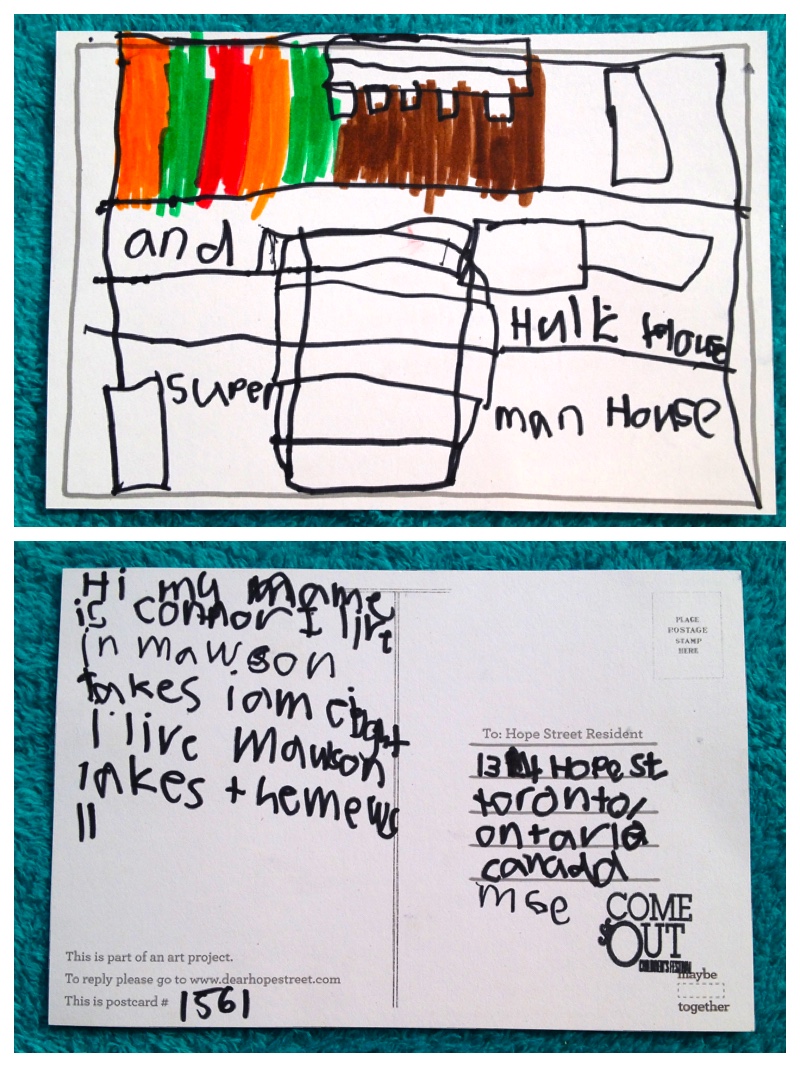 and
Hulk House
super man House
Hi my name
is connor I live
in mawson
lakes iam eight
I live mawson
lakes themews
11
PLACE
POSTAGE
STAMP
HERE
To: Hope Street Resident
134 Hope st
toronto,
ontario
canada
m6e
COME
OUT
CHILDREN'S FESTIVAL
maybe
together
This is part of an art project.
To reply please go to www.dearhopestreet.com
This is postcard # 1561